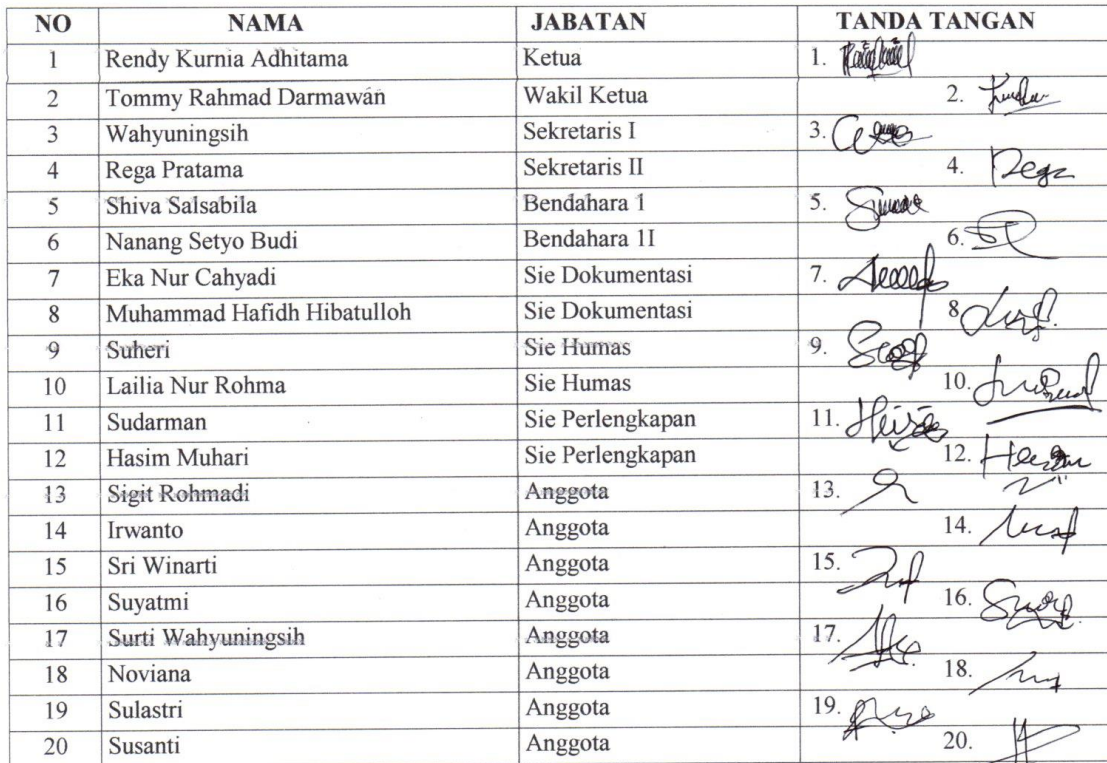 NO NAMA JABATAN TANDA TANGAN
1 Rendy Kurnia Adhitama Ketua 1.
2 Tommy Rahmad Darmawan Wakil Ketua 2.
3 Wahyuningsih Sekretaris I 3.
4 Rega Pratama Sekretaris II 4. Rega
5 Shiva Salsabila Bendahara 1 5.
6 Nanang Setyo Budi Bendahara 1I 6.
7 Eka Nur Cahyadi Sie Dokumentasi 7.
8 Muhammad Hafidh Hibatulloh Sie Dokumentasi 8
9 Suheri Sie Humas 9.
10 Lailia Nur Rohma Sie Humas 10.
11 Sudarman Sie Perlengkapan 11.
12 Hasim Muhari Sie Perlengkapan 12.
13 Sigit Rohmadi Anggota 13.
14 Irwanto Anggota 14.
15 Sri Winarti Anggota 15.
16 Suyatmi Anggota 16.
17 Surti Wahyuningsih Anggota 17.
18 Noviana Anggota 18.
19 Sulastri Anggota 19.
20 Susanti Anggota 20.